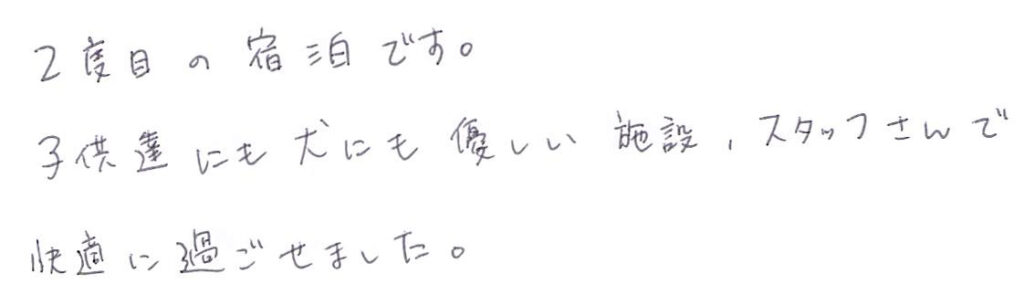 2度目の宿泊です。
子供達にも犬にも優しい施設、スタッフさんで
快適に過ごせました。